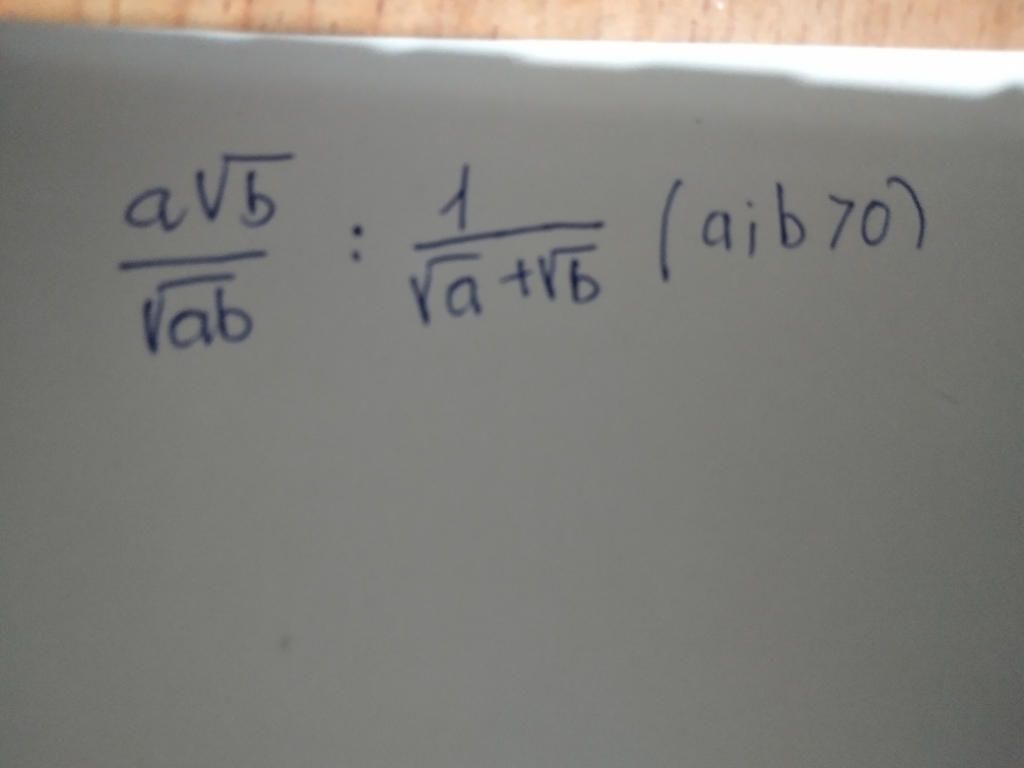 \frac{a\sqrt{b}}{\sqrt{ab}} : \frac{1}{\sqrt{a}+\sqrt{b}} (a;b>0)